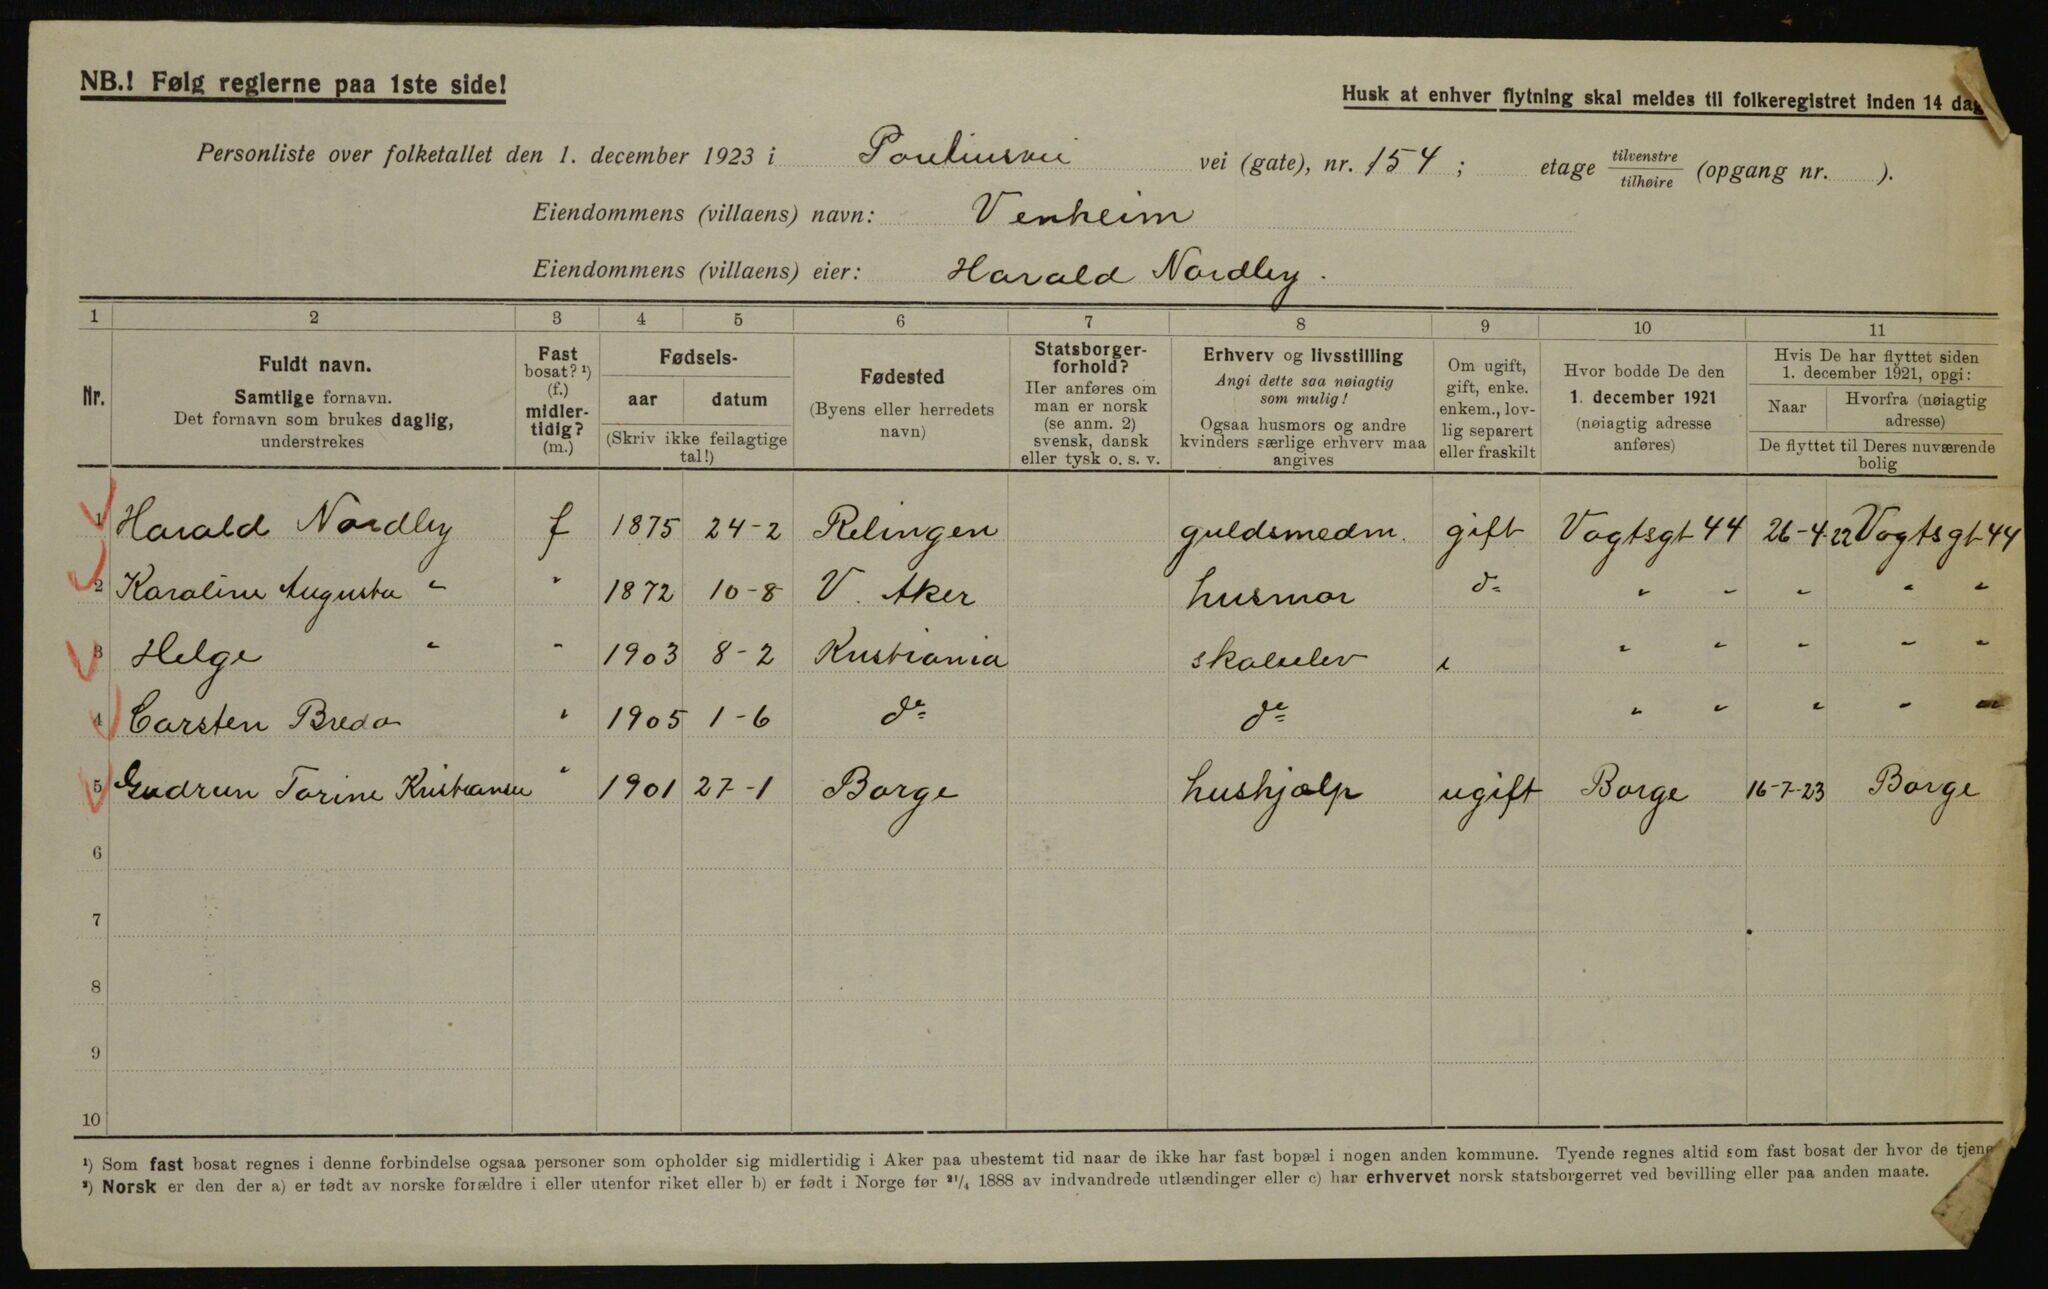 NB.! Følg reglerne paa 1ste side!
Husk at enhver flytning skal meldes til folkeregistret inden 14 dag
Personliste over folketallet den 1. december 1923 i vei (gate), nr. 154; etage tilvenstre tilhøire (opgang nr. ).
Eiendommens (villaens) navn: Venheim
Eiendommens (villaens) eier: Harald Nordby.
1 2 3 4 5 6 7 8 9 10 11
Nr.
Fuldt navn.
Samtlige fornavn.
Det fornavn som brukes daglig,
understrekes
Fast
bosat? ¹)
(f.)
midler-
tidig?
(m.)
Fødsels-
aar datum
(Skriv ikke feilagtige
tal!)
Fødested
(Byens eller herredets
navn)
Statsborger-
forhold?
Her anføres om
man er norsk
(se anm. 2)
svensk, dansk
eller tysk o. s. v.
Erhverv og livsstilling
Angi dette saa nøiagtig
som mulig!
Ogsaa husmors og andre
kvinders særlige erhverv maa
angives
Om ugift,
gift, enke.
enkem., lov-
lig separert
eller fraskilt
Hvor bodde De den
1. december 1921
(nøiagtig adresse
anføres)
Hvis De har flyttet siden
1. december 1921, opgi:
Naar
Hvorfra (nøiagtig
adresse)
De flyttet til Deres nuværende
bolig
1 Harald Nordby f 1875 24-2 Relingen guldsmedm. gift Vogtsgt 44 26-4-22 Vogtsgt 44
2 Karoline Augusta " " 1872 10-8 V. Aker husmor do " " " " "
3 Helge " " 1903 8-2 Kristiania skoleelev " " " " "
4 Carsten Bredo " 1905 1-6 do do " " " " "
5 Gudrun Torine Kristiansen " 1901 27-1 Borge hushjælp ugift Borge 16-7-23 Borge
6
7
8
9
10
¹) Som fast bosat regnes i denne forbindelse ogsaa personer som opholder sig midlertidig i Aker paa ubestemt tid naar de ikke har fast bopæl i nogen anden kommune. Tyende regnes altid som fast bosat der hvor de tjene
²) Norsk er den der a) er født av norske forældre i eller utenfor riket eller b) er født i Norge før ²¹/₄ 1888 av indvandrede utlændinger eller c) har erhvervet norsk statsborgerret ved bevilling eller paa anden maate.